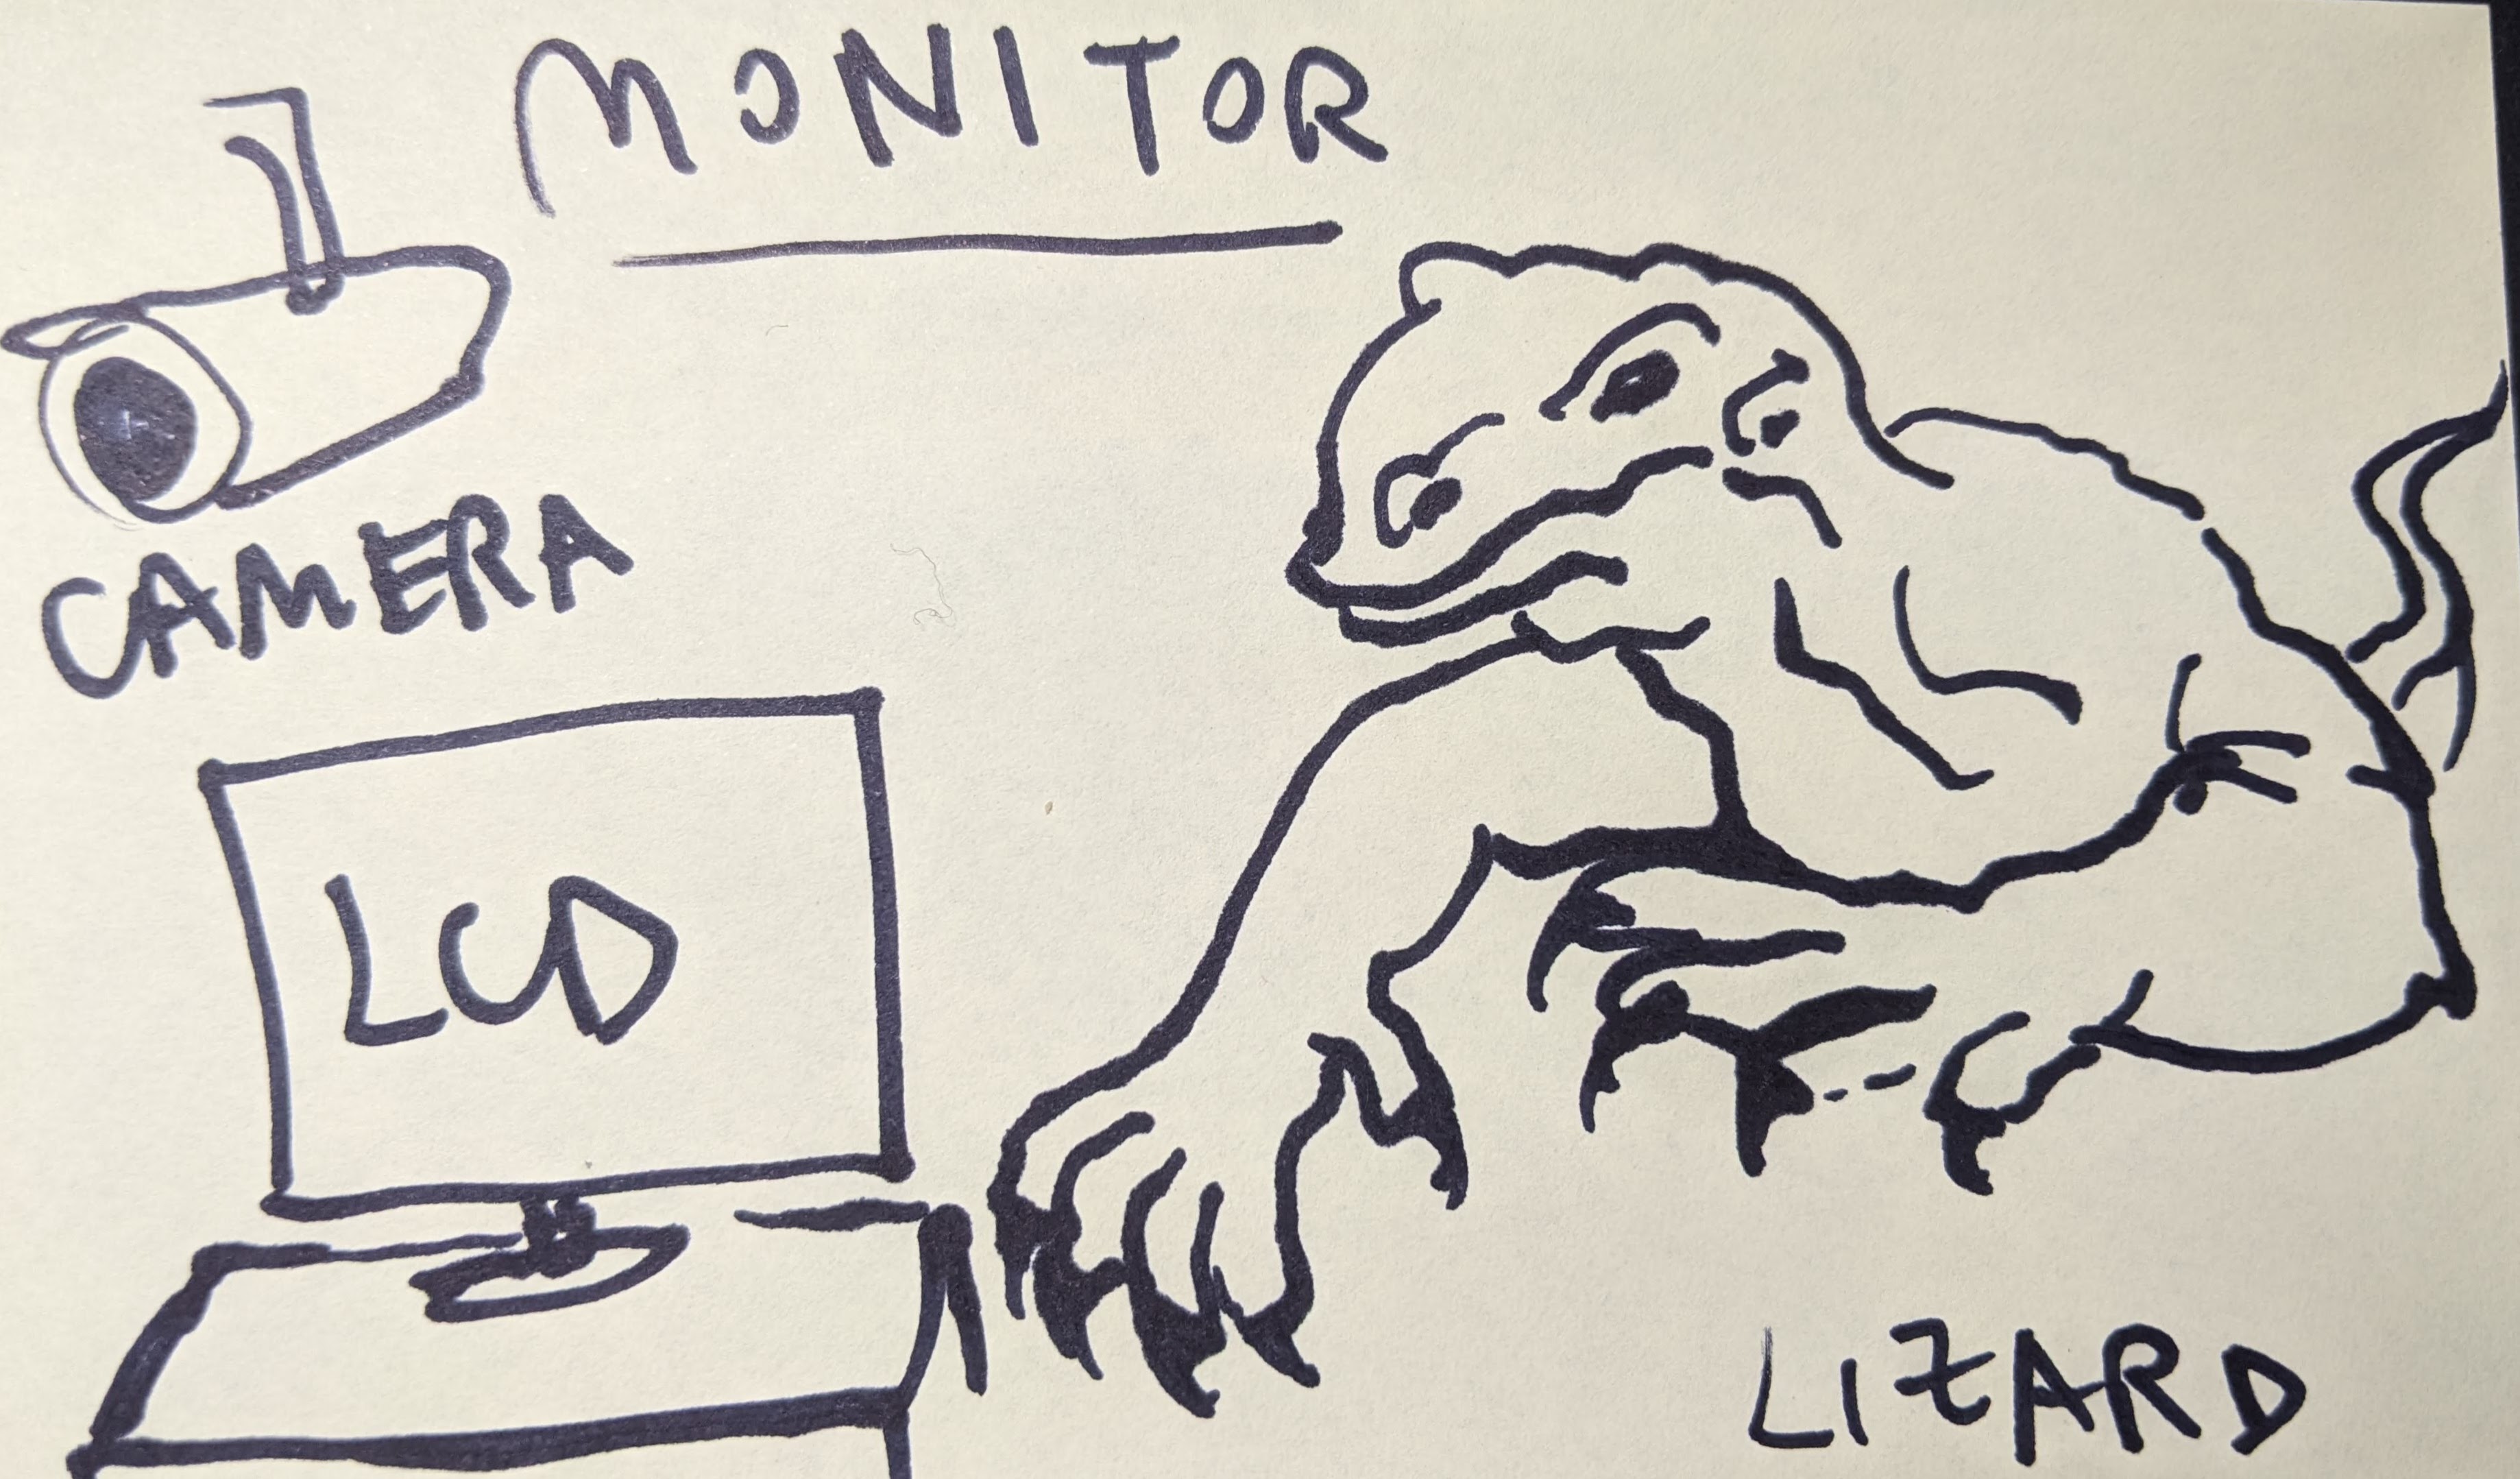 MONITOR
CAMERA
LCD
LIZARD